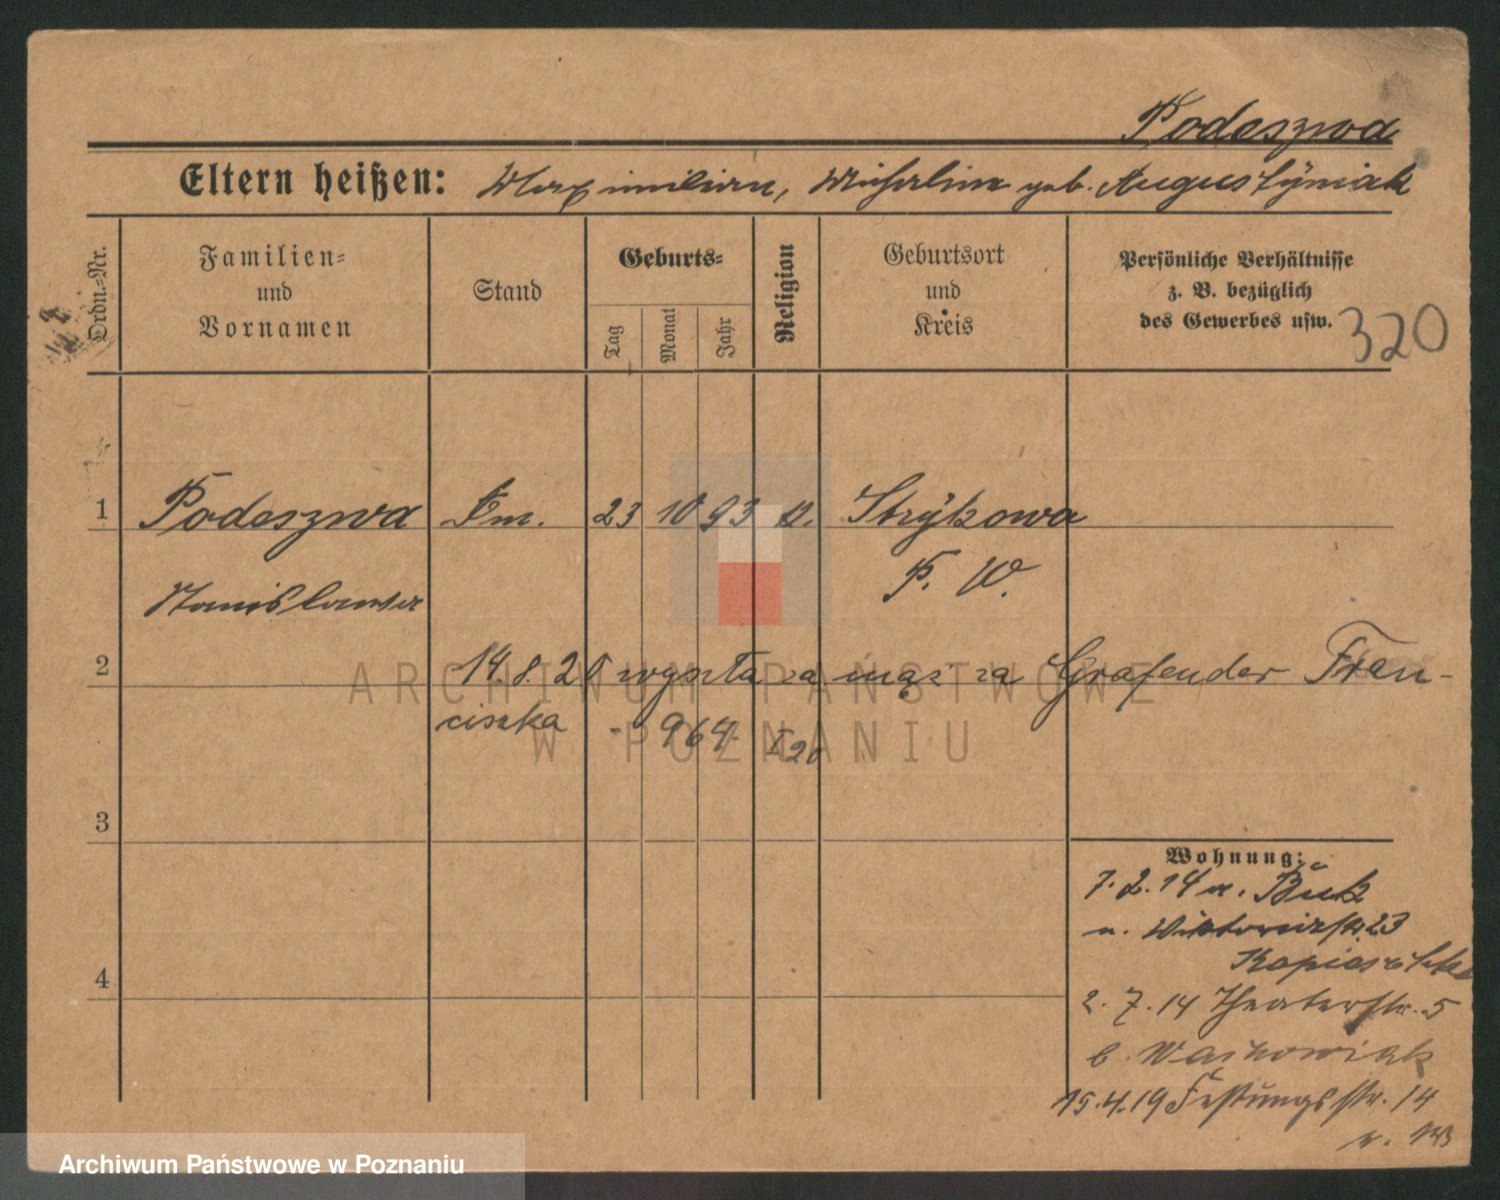 Podeszwa
Eltern heißen: Maximilian, Michaline geb. Augustyniak
Ordn.-Nr.
Familien-
und
Vornamen
Stand
Geburts-
Tag
Monat
Jahr
Religion
Geburtsort
und
Kreis
Persönliche Verhältnisse
z. B. bezüglich
des Gewerbes usw.
320
1 Podeszwa 23 10 93 Strÿkowa
P. W.
Stanislawa
2 14.8.20 wyszła za mąż za Grafender Fran-
ciszka - 964. 20
3
4
Wohnung:
7.2.14 Buk
n. Viktoriastr. 23
2.7.14 Theaterstr. 5
b. Waskowiak
15.4.19 Festungsstr. 14
ARCHIWUM PAŃSTWOWE
W POZNANIU
Archiwum Państwowe w Poznaniu